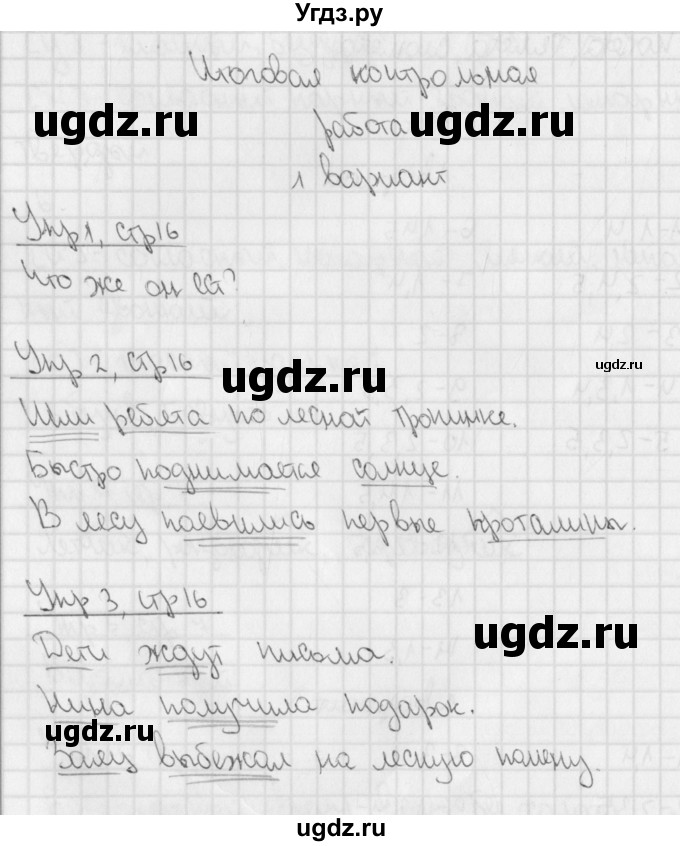 Угдз.ру
Итоговая контрольная
ugdz.ru ugdz.ru
работа
1 вариант
Упр 1, стр 16
Что же он ест?
Упр 2, стр 16
ugdz.ru ugdz.ru
Шли ребята по лесной тропинке.
Быстро поднимается солнце.
В лесу появились первые проталины.
Упр 3, стр 16
ugdz.ru
Дети ждут письма.
Нина получила подарок.
ugdz.ru
Заяц выбежал на лесную поляну.
ugdz.ru